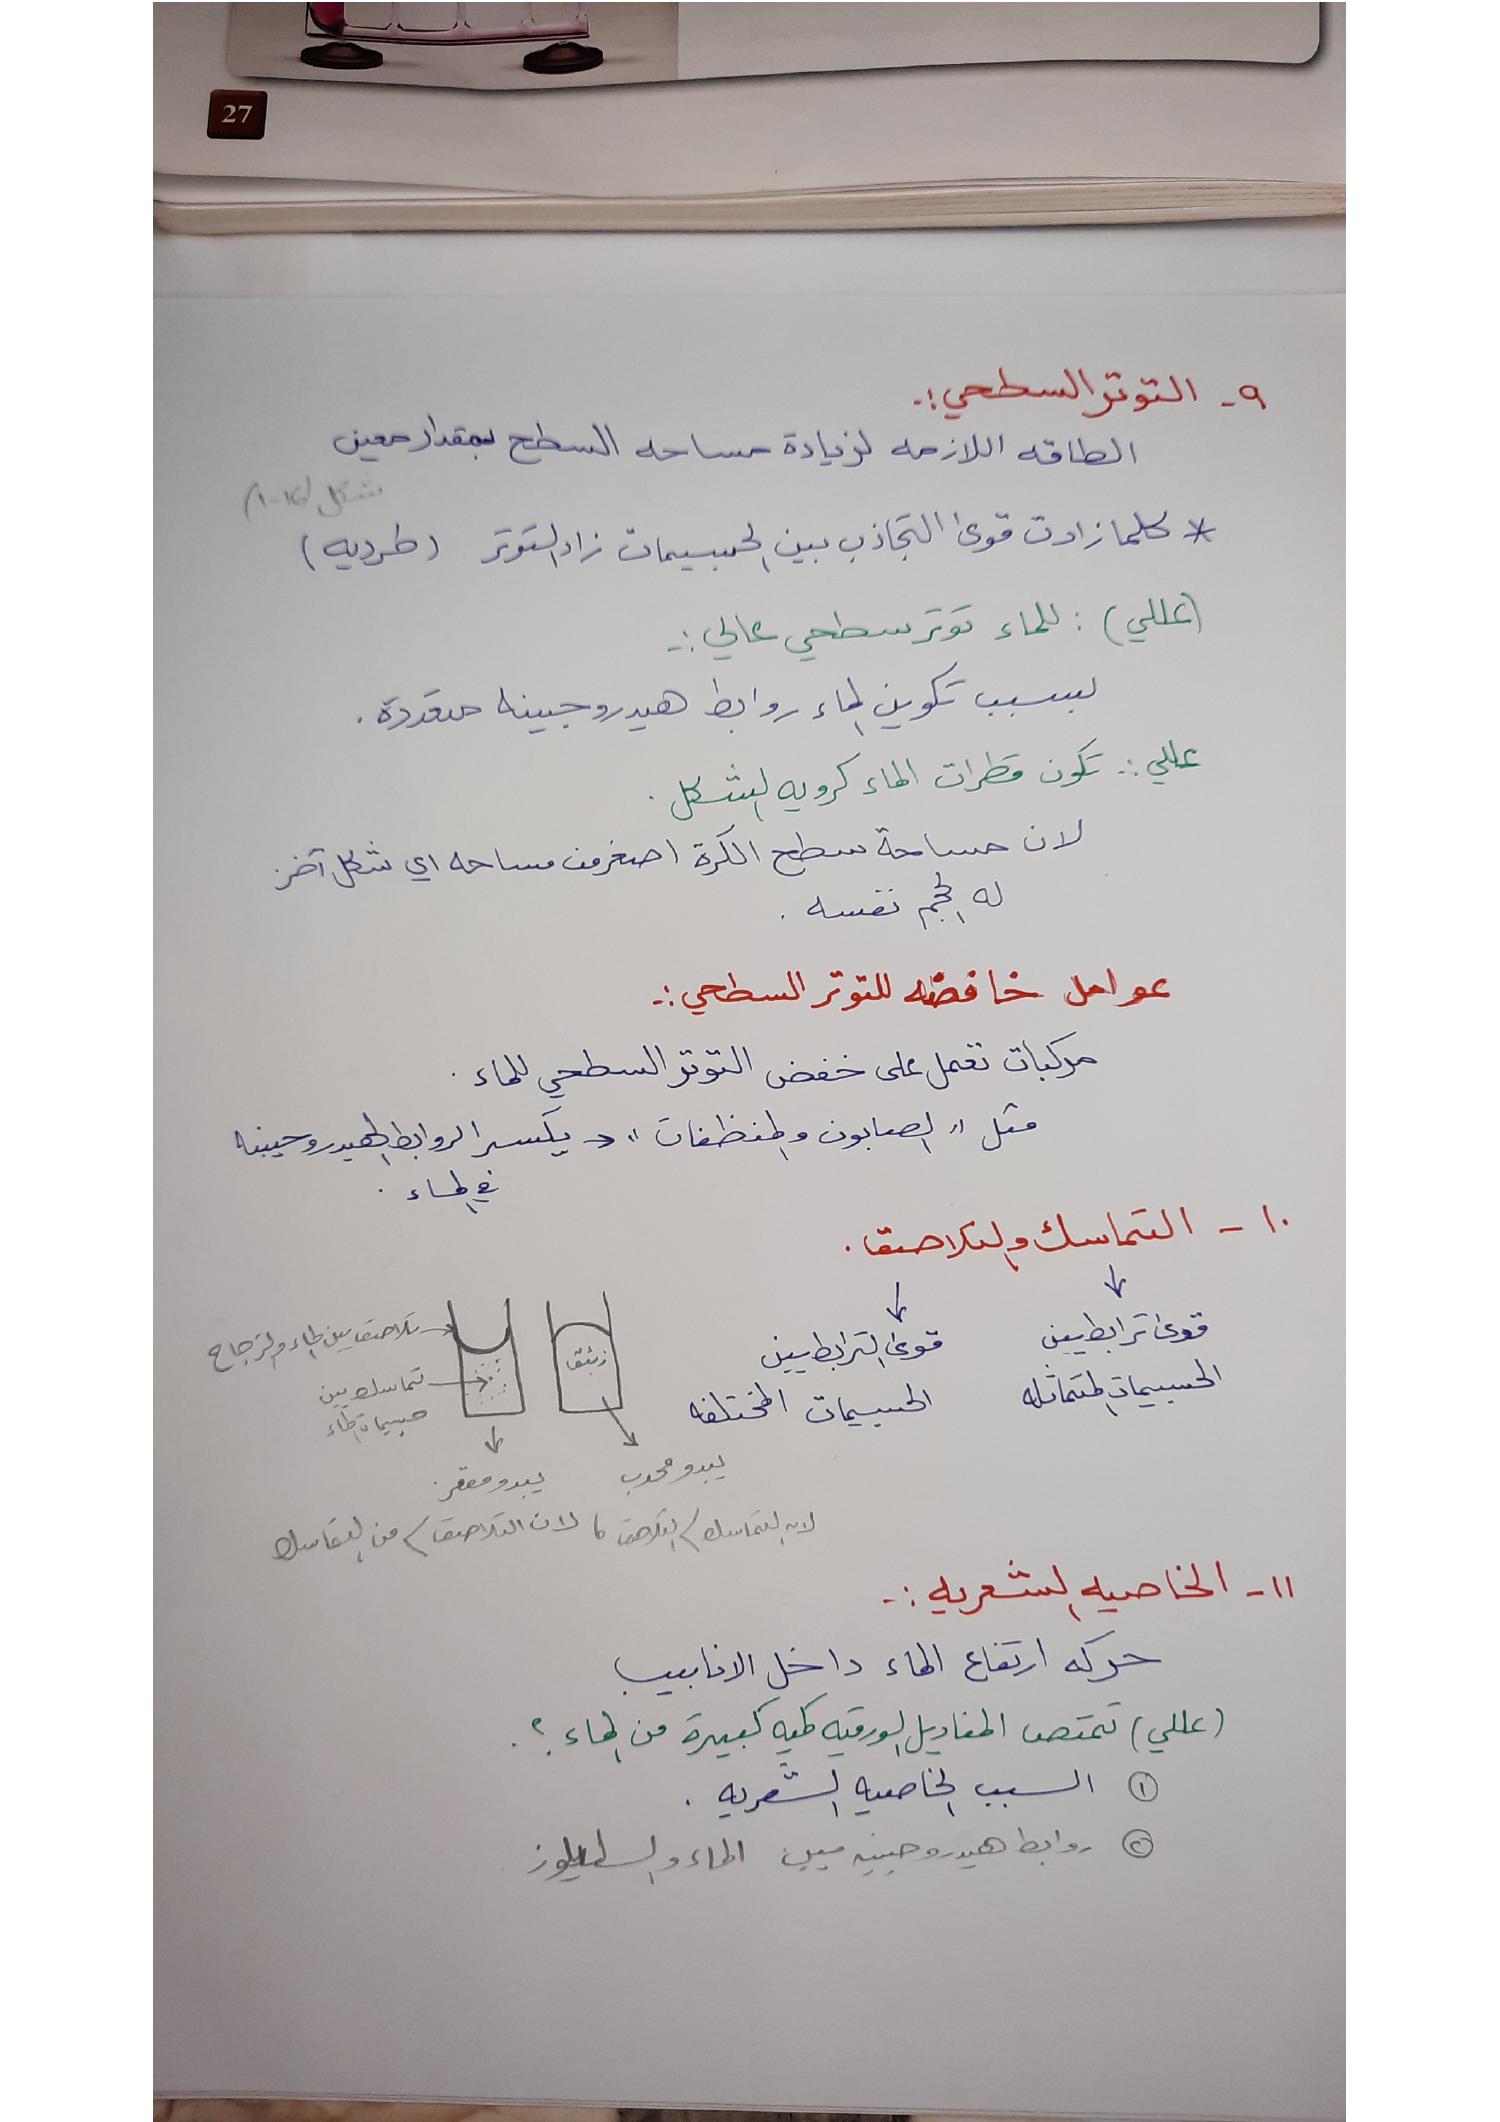 27
٩- التوتر السطحي :-
الطاقه اللازمه لزيادة مساحه السطح بمقدار معين
شكل (١٦-١)
* كلما زادت قوى التجاذب بين الجسيمات زاد التوتر (طرديه)
(عللي) : للماء توتر سطحي عالي :-
بسبب تكوين الماء روابط هيدروجينه متعددة .
عللي :- تكون قطرات الماء كرويه الشكل .
لان مساحة سطح الكرة اصغر من مساحه اي شكل آخر
له الحجم نفسه .
عوامل خافضه للتوتر السطحي :-
مركبات تعمل على خفض التوتر السطحي للماء .
مثل " الصابون والمنظفات " > يكسر الروابط الهيدروجينيه
في الماء .
١٠ - التماسك والتلاصق .
↓ ↓
قوى ترابط بين
الجسيمات المتماثله
قوى الترابط بين
الجسيمات المختلفه
زئبق
تلاصق بين الماء والزجاج
تماسك بين
جسيمات الماء
يبدو محدب
يبدو مقعر .
لان التماسك > التلاصق ، لان التلاصق > من التماسك
١١- الخاصيه الشعريه :-
حركه ارتفاع الماء داخل الانابيب
(عللي) تمتص المناديل الورقيه كميه كبيرة من الماء ؟ .
① السبب الخاصيه الشعريه .
② روابط هيدروجينيه بين الماء والسليلوز